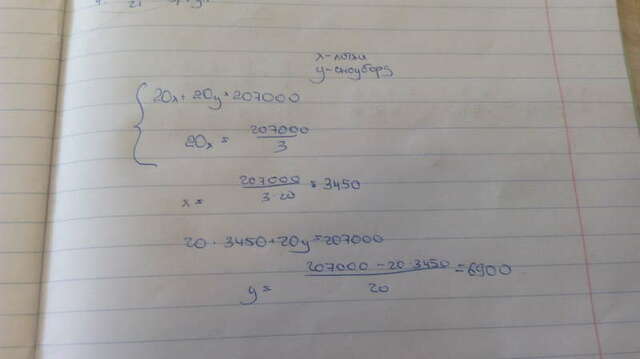 x-лыжи
y-сноуборд
20x + 20y = 207000
20x = 207000/3
x = 207000/3·20 = 3450
20 · 3450 + 20y = 207000
y = 207000 - 20·3450/20 = 6900